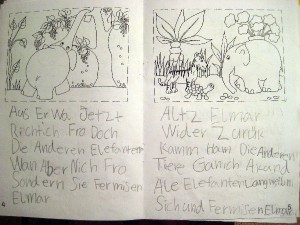 Aus Er Wa Jetzt
Rechtich Fro Doch
De Anderen Elefanten
Wan Aber Nich Fro
Sondern Sie Fermisen
Elmar
4
Altz Elmar
Wider Zurük
Kamm Ham Die Anderen
Tiere Ganich Akand
Ale Elefanten Langweiltn
Sich und Fermisen Elmar
5